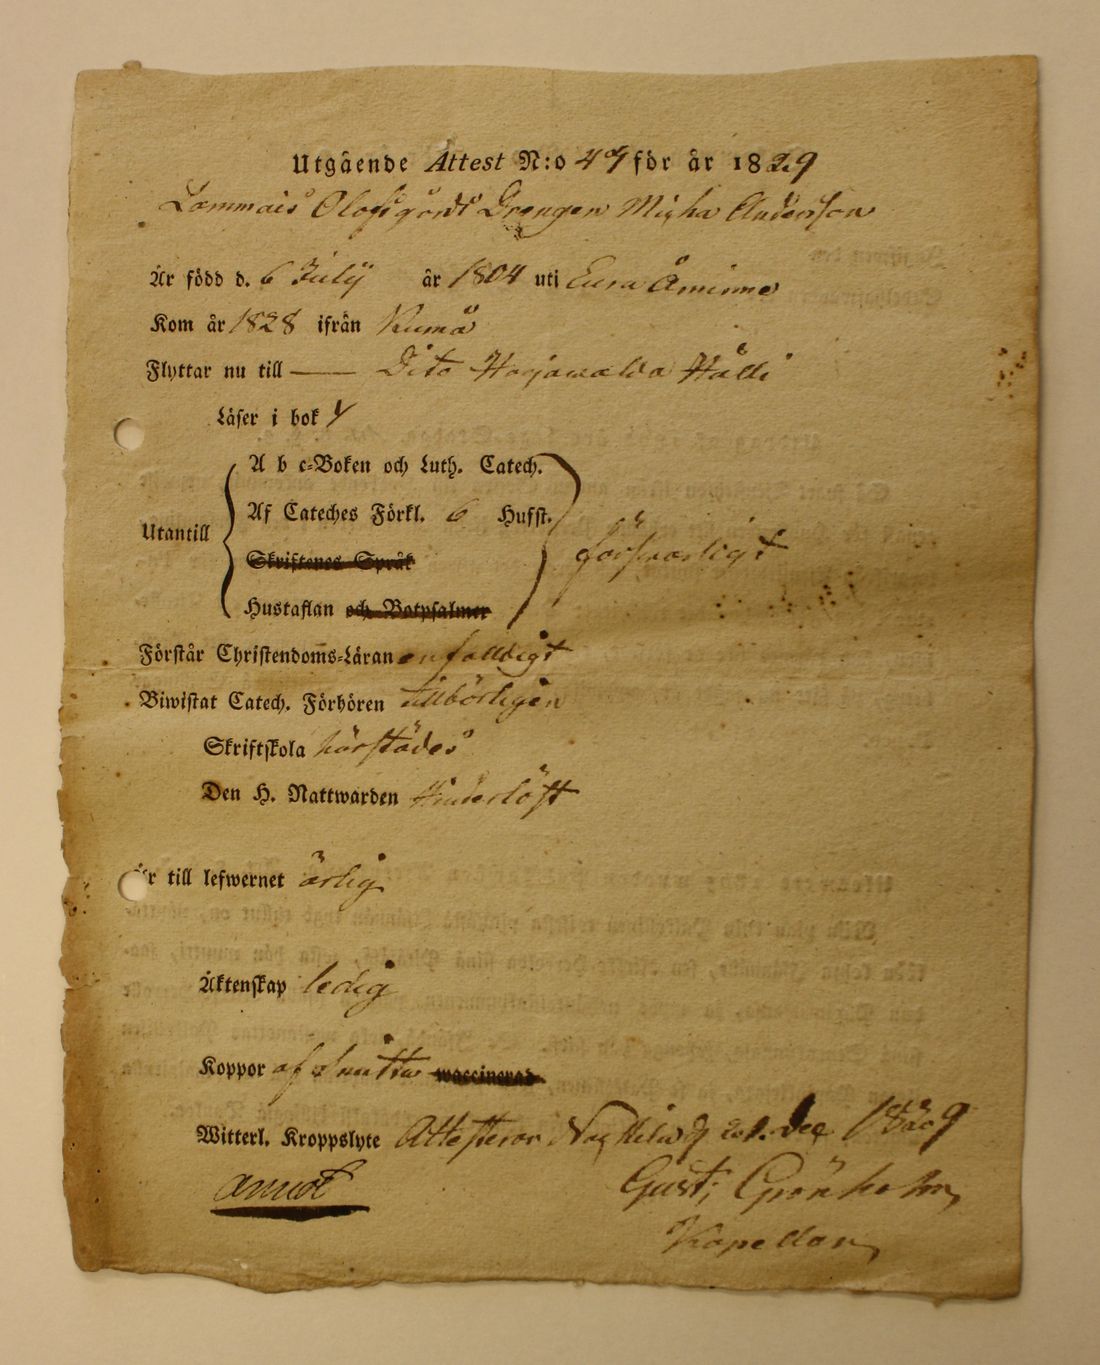 Utgående Attest N:o 47 för år 1829
Lammais Olofsgårds Drengen Micha Andersson
Är född d. 6 Julÿ år 1804 uti Eura Åminne
Kom år 1828 ifrån Kumå
Flyttar nu till — Dito Harjavalda Hälli
Läser i bok
Utantill
A b c-Boken och Luth. Catech.
Af Cateches Förkl. 6 Hufst.
Skriftenes Språk
Hustaflan och Botpsalmer
försvarligt
Förstår Christendoms-Läran enfalldigt
Biwistat Catech. Förhören tillbörligen
Skriftskola härstädes
Den H. Nattwarden Hinderlöst
Är till lefwernet ärlig
Äktenskap ledig
Koppor af Smitta waccinerad
Witterl. Kroppslyte Attesterar d 201. Dec 1829
Gust; Grönholm,
Kapellan,